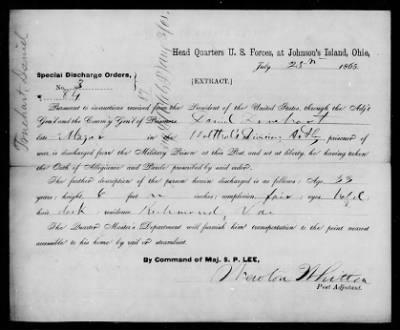 Head Quarters U. S. Forces, at Johnson's Island, Ohio,
July 25th 1865.
Special Discharge Orders,
No. 84
[EXTRACT.]
Pursuant to instructions received from the President of the United States, through the Adj't
Gen'l and the Comm'y Gen'l of Prisoners Daniel
late Major in the Division prisoner of
war, is discharged from the Military Prison at this Post, and set at liberty, he having taken
the Oath of Allegiance and Parole prescribed by said order.
The further description of the person herein discharged is as follows: Age 33
years; height 6 feet inches; complexion fair; eyes
hair dark; residence Richmond, Va
The Quarter Master's Department will furnish him transportation to the point nearest
accessible to his home by rail or steamboat.
By Command of Maj. S. P. LEE,
Newton
Post Adjutant.
Daniel